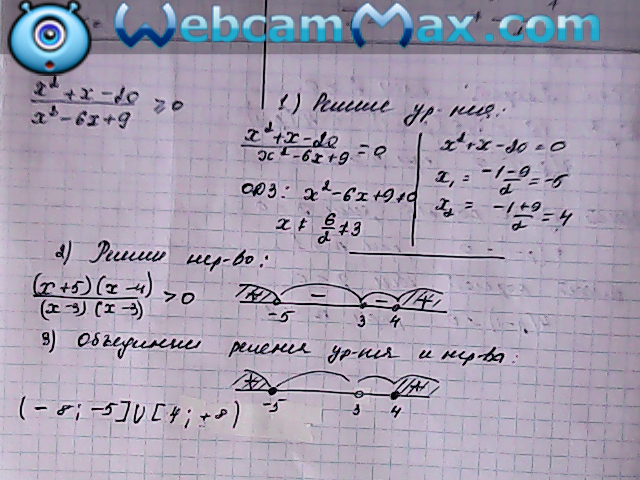 WebcamMax.com
x² + x - 20 / x² - 6x + 9 ≥ 0
1) Решим ур-ния:
x² + x - 20 / x² - 6x + 9 = 0
ОДЗ: x² - 6x + 9 ≠ 0
x ≠ 6/2 ≠ 3
x² + x - 20 = 0
x₁ = -1-9/2 = -5
x₂ = -1+9/2 = 4
2) Решим нер-во:
(x+5)(x-4) / (x-3)(x-3) > 0
+ - - +
-5 3 4
3) Объединим решения ур-ния и нер-ва:
+ +
-5 3 4
(-8; -5] U [4; +8)